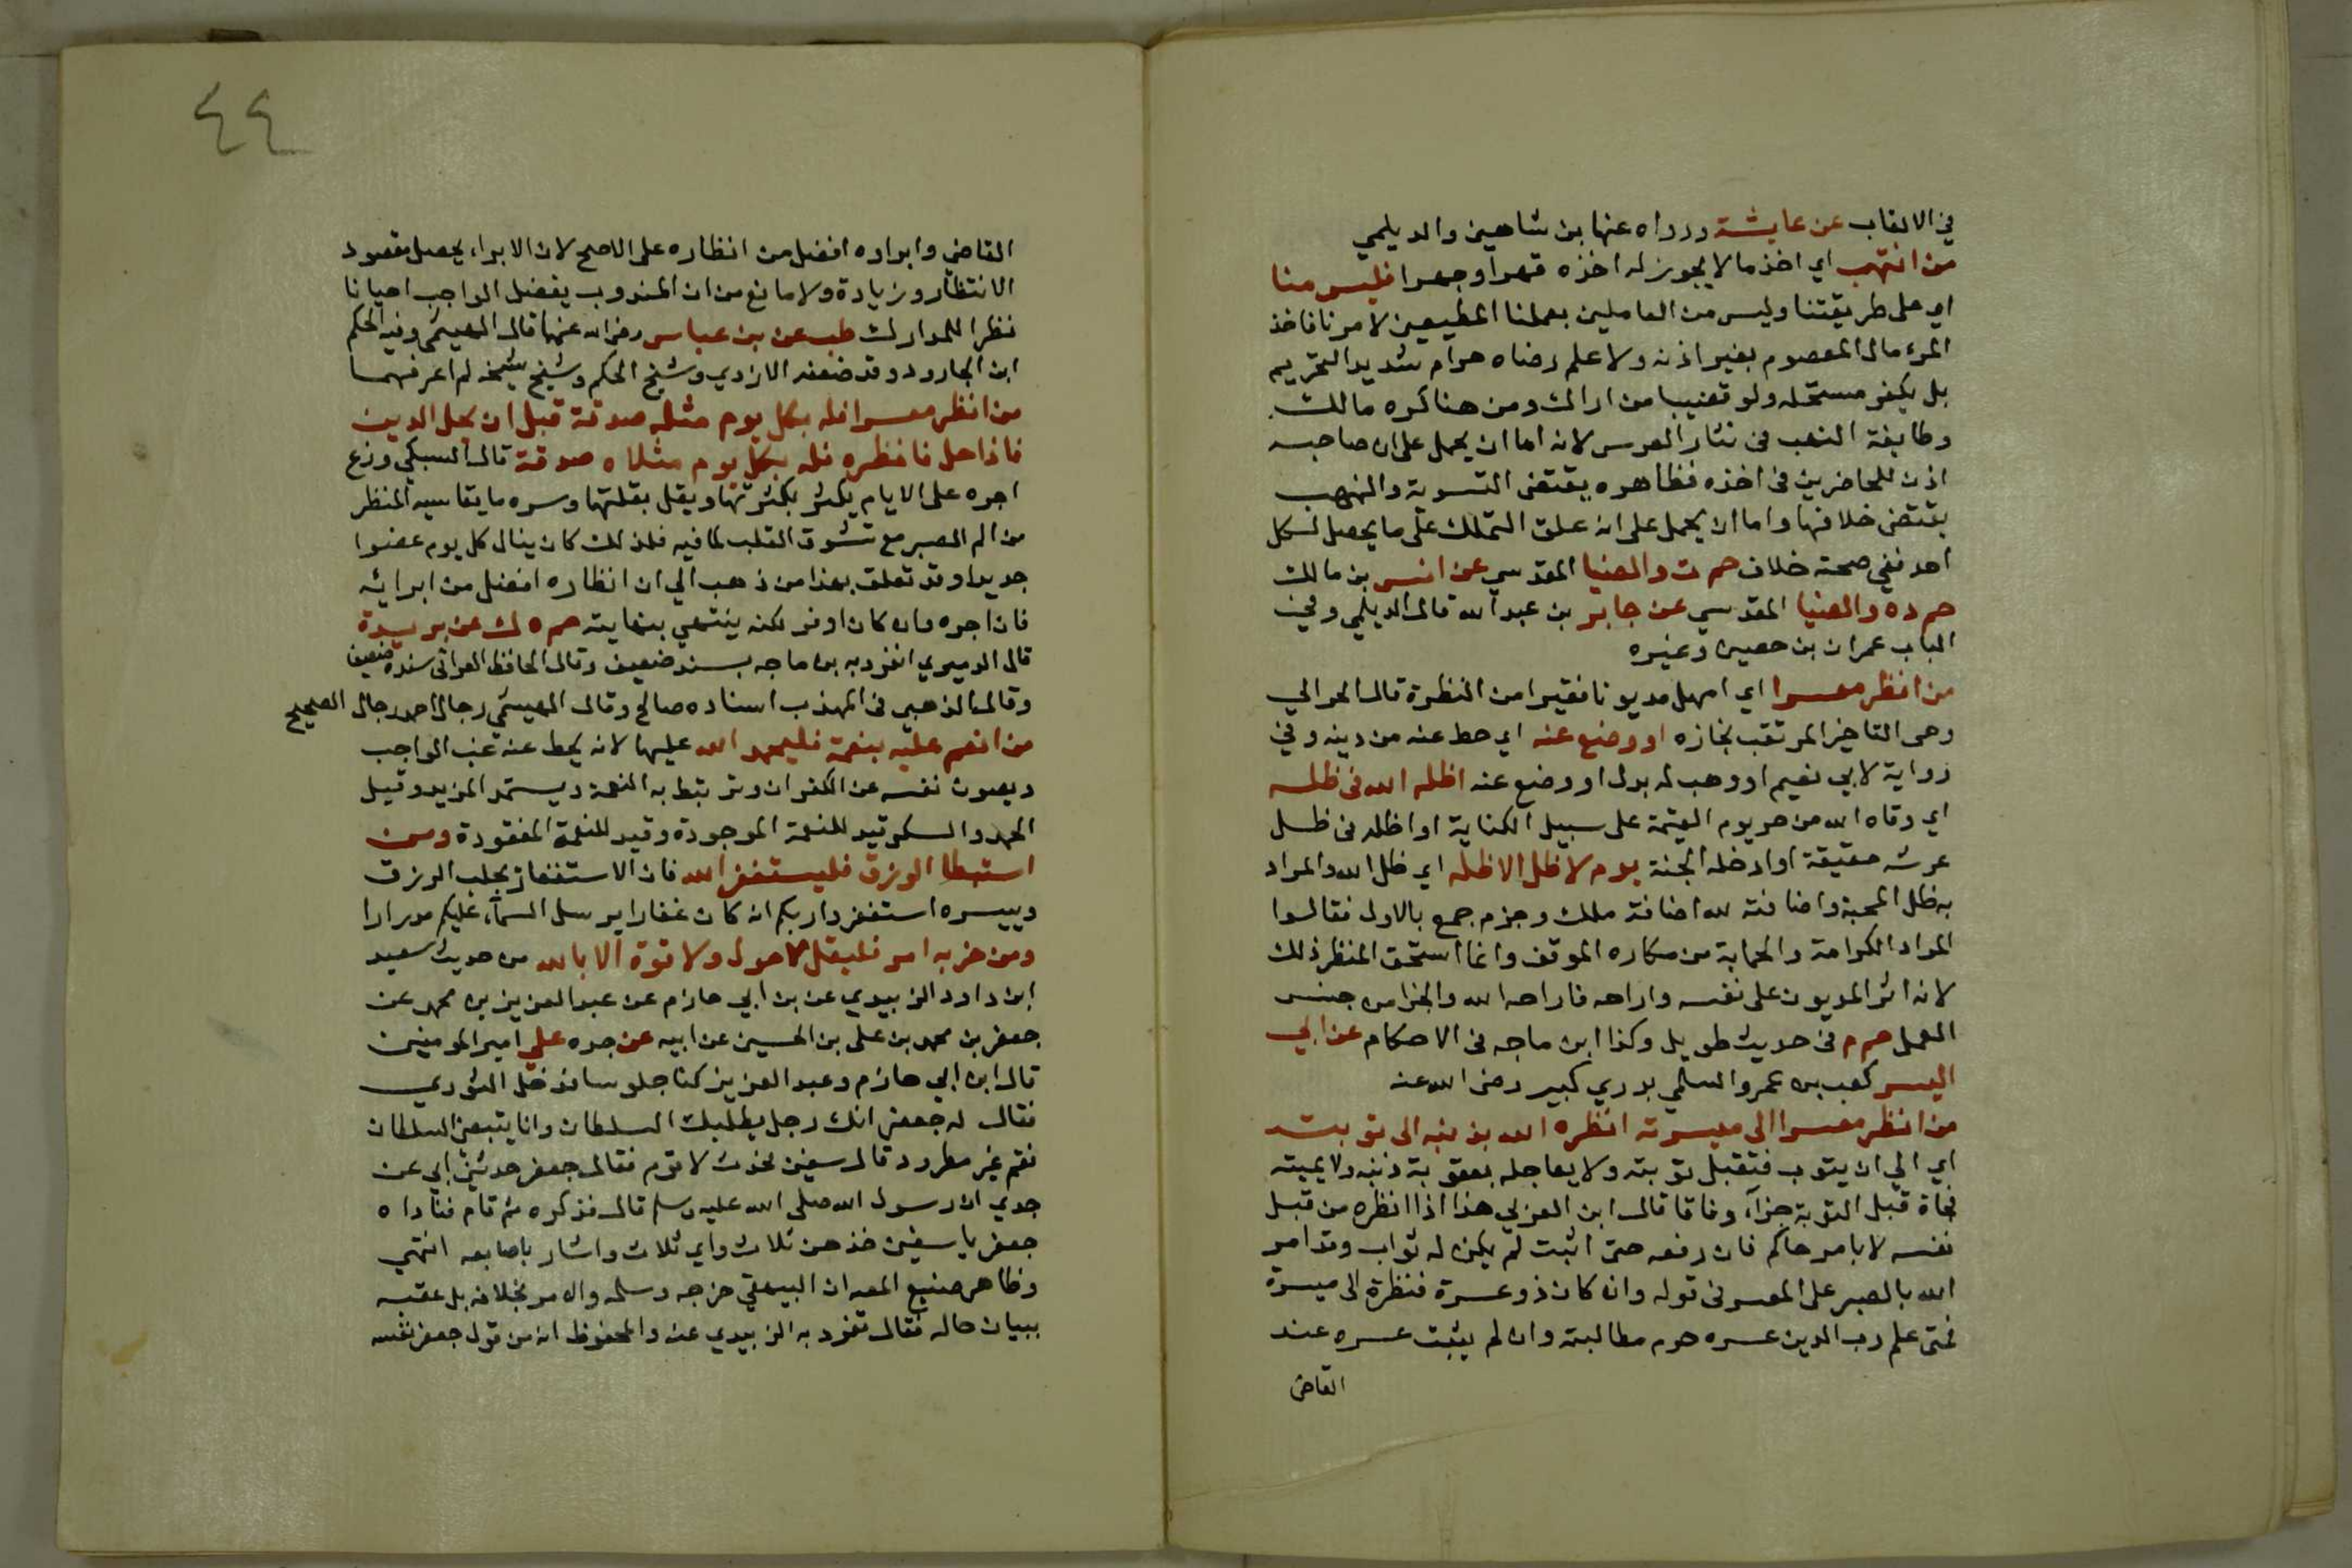 في الالقاب عن عايشة ورواه عنها بن شاهين والديلمي
من انتهب اي اخذ مالا يجوز له اخذه قهرا وجهرا فليس منا
اي على طريقتنا وليس من العاملين بعملنا المطيعين لامرنا فاخذ
المرء مال المعصوم بغير اذنه ولا علم رضاه حرام شديد التحريم
بل يكفر مستحله ولو قضيبا من اراك ومن هنا كره مالك
وطايفة النهب في نثار العرس لانه اما ان يحمل على ان صاحبه
اذن للحاضرين في اخذه فظاهره يقتضي التسوية والنهب
يقتضي خلافها واما ان يحمل على انه علق التملك على ما يحصل لكل
احد ففي صحته خلاف حم ت والضيا المقدسي عن انس بن مالك
حم د ه والضيا المقدسي عن جابر بن عبد الله قال الديلمي وفي
الباب عمران بن حصين وغيره
من انظر معسرا اي امهل مديونا فقيرا من النظرة قال الحرالي
وهي التاخير المرتقب نجازه او وضع عنه اي حط عنه من دينه وفي
رواية لابي نعيم او وهب له بدل او وضع عنه اظله الله في ظله
اي وقاه الله من حر يوم القيمة على سبيل الكناية او اظله في ظل
عرشه حقيقة او ادخله الجنة يوم لا ظل الا ظله اي ظل الله والمراد
به ظل المحبة واضافته لله اضافة ملك وجزم جمع بالاول فقالوا
المراد الكرامة والحماية من مكاره الموقف وانما استحق المنظر ذلك
لانه اثر المديون على نفسه واراحه فاراحه الله والجزا من جنس
العمل حم م في حديث طويل وكذا ابن ماجه في الاحكام عن ابي
اليسر كعب بن عمرو السلمي بدري كبير رضي الله عنه
من انظر معسرا الى ميسرته انظره الله بذنبه الى توبته
اي الي ان يتوب فتقبل توبته ولا يعاجله بعقوبة ذنبه ولا يميته
فجاة قبل التوبة جزآء وفاقا قال ابن العربي هذا اذا انظره من قبل
نفسه لا بامر حاكم فان رفعه حتى اثبت لم يكن له ثواب وقد امر
الله بالصبر على المعسر في قوله وان كان ذو عسرة فنظرة الى ميسرة
فمتى علم رب الدين عسره حرم مطالبته وان لم يثبت عسره عند
القاضي
٤٤
القاضي وابراوه افضل من انظاره على الاصح لان الابراء يحصل مقصود
الانتظار وزيادة ولا مانع من ان المندوب يفضل الواجب احيانا
نظرا للمدارك طب عن بن عباس رضي الله عنهما قال الهيثمي وفيه الحكم
ابن الجارود وقد ضعفه الازدي وشيخ الحكم وشيخ شيخه لم اعرفهما
من انظر معسرا فله بكل يوم مثله صدقة قبل ان يحل الدين
فاذا حل فانظره فله بكل يوم مثلاه صدقة قال السبكي وزع
اجره على الايام يكثر بكثرتها ويقل بقلتها وسره ما يقاسيه المنظر
من الم الصبر مع تشوق القلب لما فيه فلذلك كان ينال كل يوم عضوا
جديدا وقد تعلق بهذا من ذهب الي ان انظاره افضل من ابرائه
فان اجره وان كان اوفر لكنه ينتهي بنهايته حم ه ك عن بريدة
قال الدميري انفرد به بن ماجه بسند ضعيف وقال الحافظ العراقي سنده ضعيف
وقال الذهبي في المهذب اسناده صالح وقال الهيثمي رجال احمد رجال الصحيح
من انعم عليه بنعمة فليحمد الله عليها لانه يحط عنه عنب الواجب
ويصون نفسه عن الكفران وترتبط به النعمة ويستمد المزيد وقيل
الحمد والشكر قيد للنعمة الموجودة وقيد للنعمة المفقودة ومن
استبطا الرزق فليستغفر الله فان الاستغفار يجلب الرزق
وييسره استغفروا ربكم انه كان غفارا يرسل السمآء عليكم مدرارا
ومن حزبه امر فليقل لا حول ولا قوة الا بالله من حديث سعيد
ابن داود الزبيدي عن بن ابي حازم عن عبد العزيز بن محمد عن
جعفر بن محمد بن علي بن الحسين عن ابيه عن جده علي امير المومنين
قال ابن ابي حازم وعبد العزيز كنا جلوسا فدخل الثوري
فقال له جعفر انك رجل يطلبك السلطان وانا يتبعني السلطان
فقم غير مطرود قال سفين تحدث لاقوم فقال جعفر حدثني ابي عن
جدي ان رسول الله صلى الله عليه وسلم قال فذكره ثم قام فناداه
جعفر يا سفين خذهن ثلاث واي ثلاث واشار باصابعه انتهي
وظاهر صنيع المص ان البيهقي خرجه وسلمه والامر بخلافه بل عقبه
ببيان حاله فقال تفرد به الزبيدي عنه والمحفوظ انه من قول جعفر نفسه